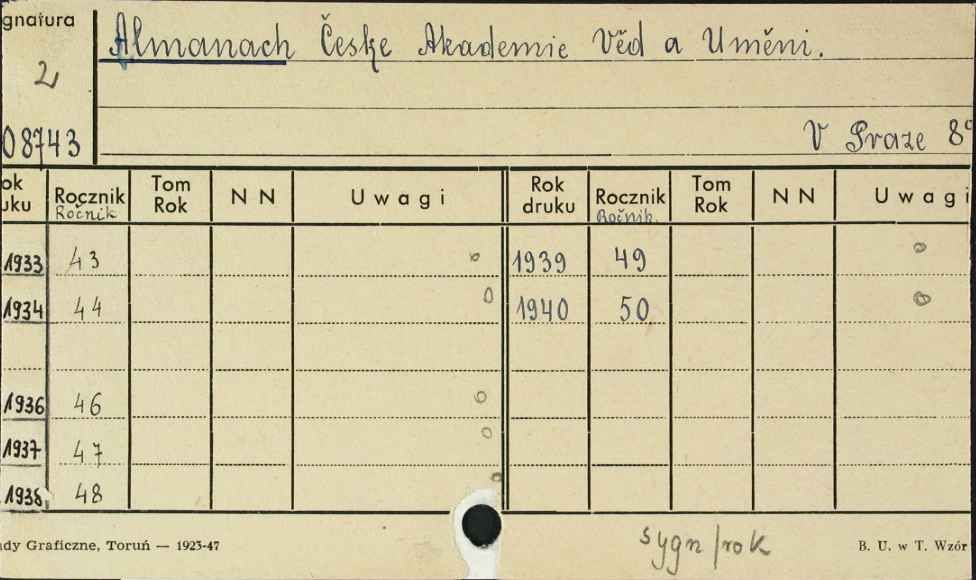 gnatura
Almanach České Akademie Věd a Uměni.
2
08743
V Praze 8°
ok
uku
Rocznik
Ročnik
Tom
Rok
N N
Uwagi
Rok
druku
Rocznik
Ročnik.
Tom
Rok
N N
Uwagi
1933 43 1939 49
1934 44 1940 50
1936 46
1937 47
1938 48
ady Graficzne, Toruń — 1923-47
sygn/rok
B. U. w T. Wzór